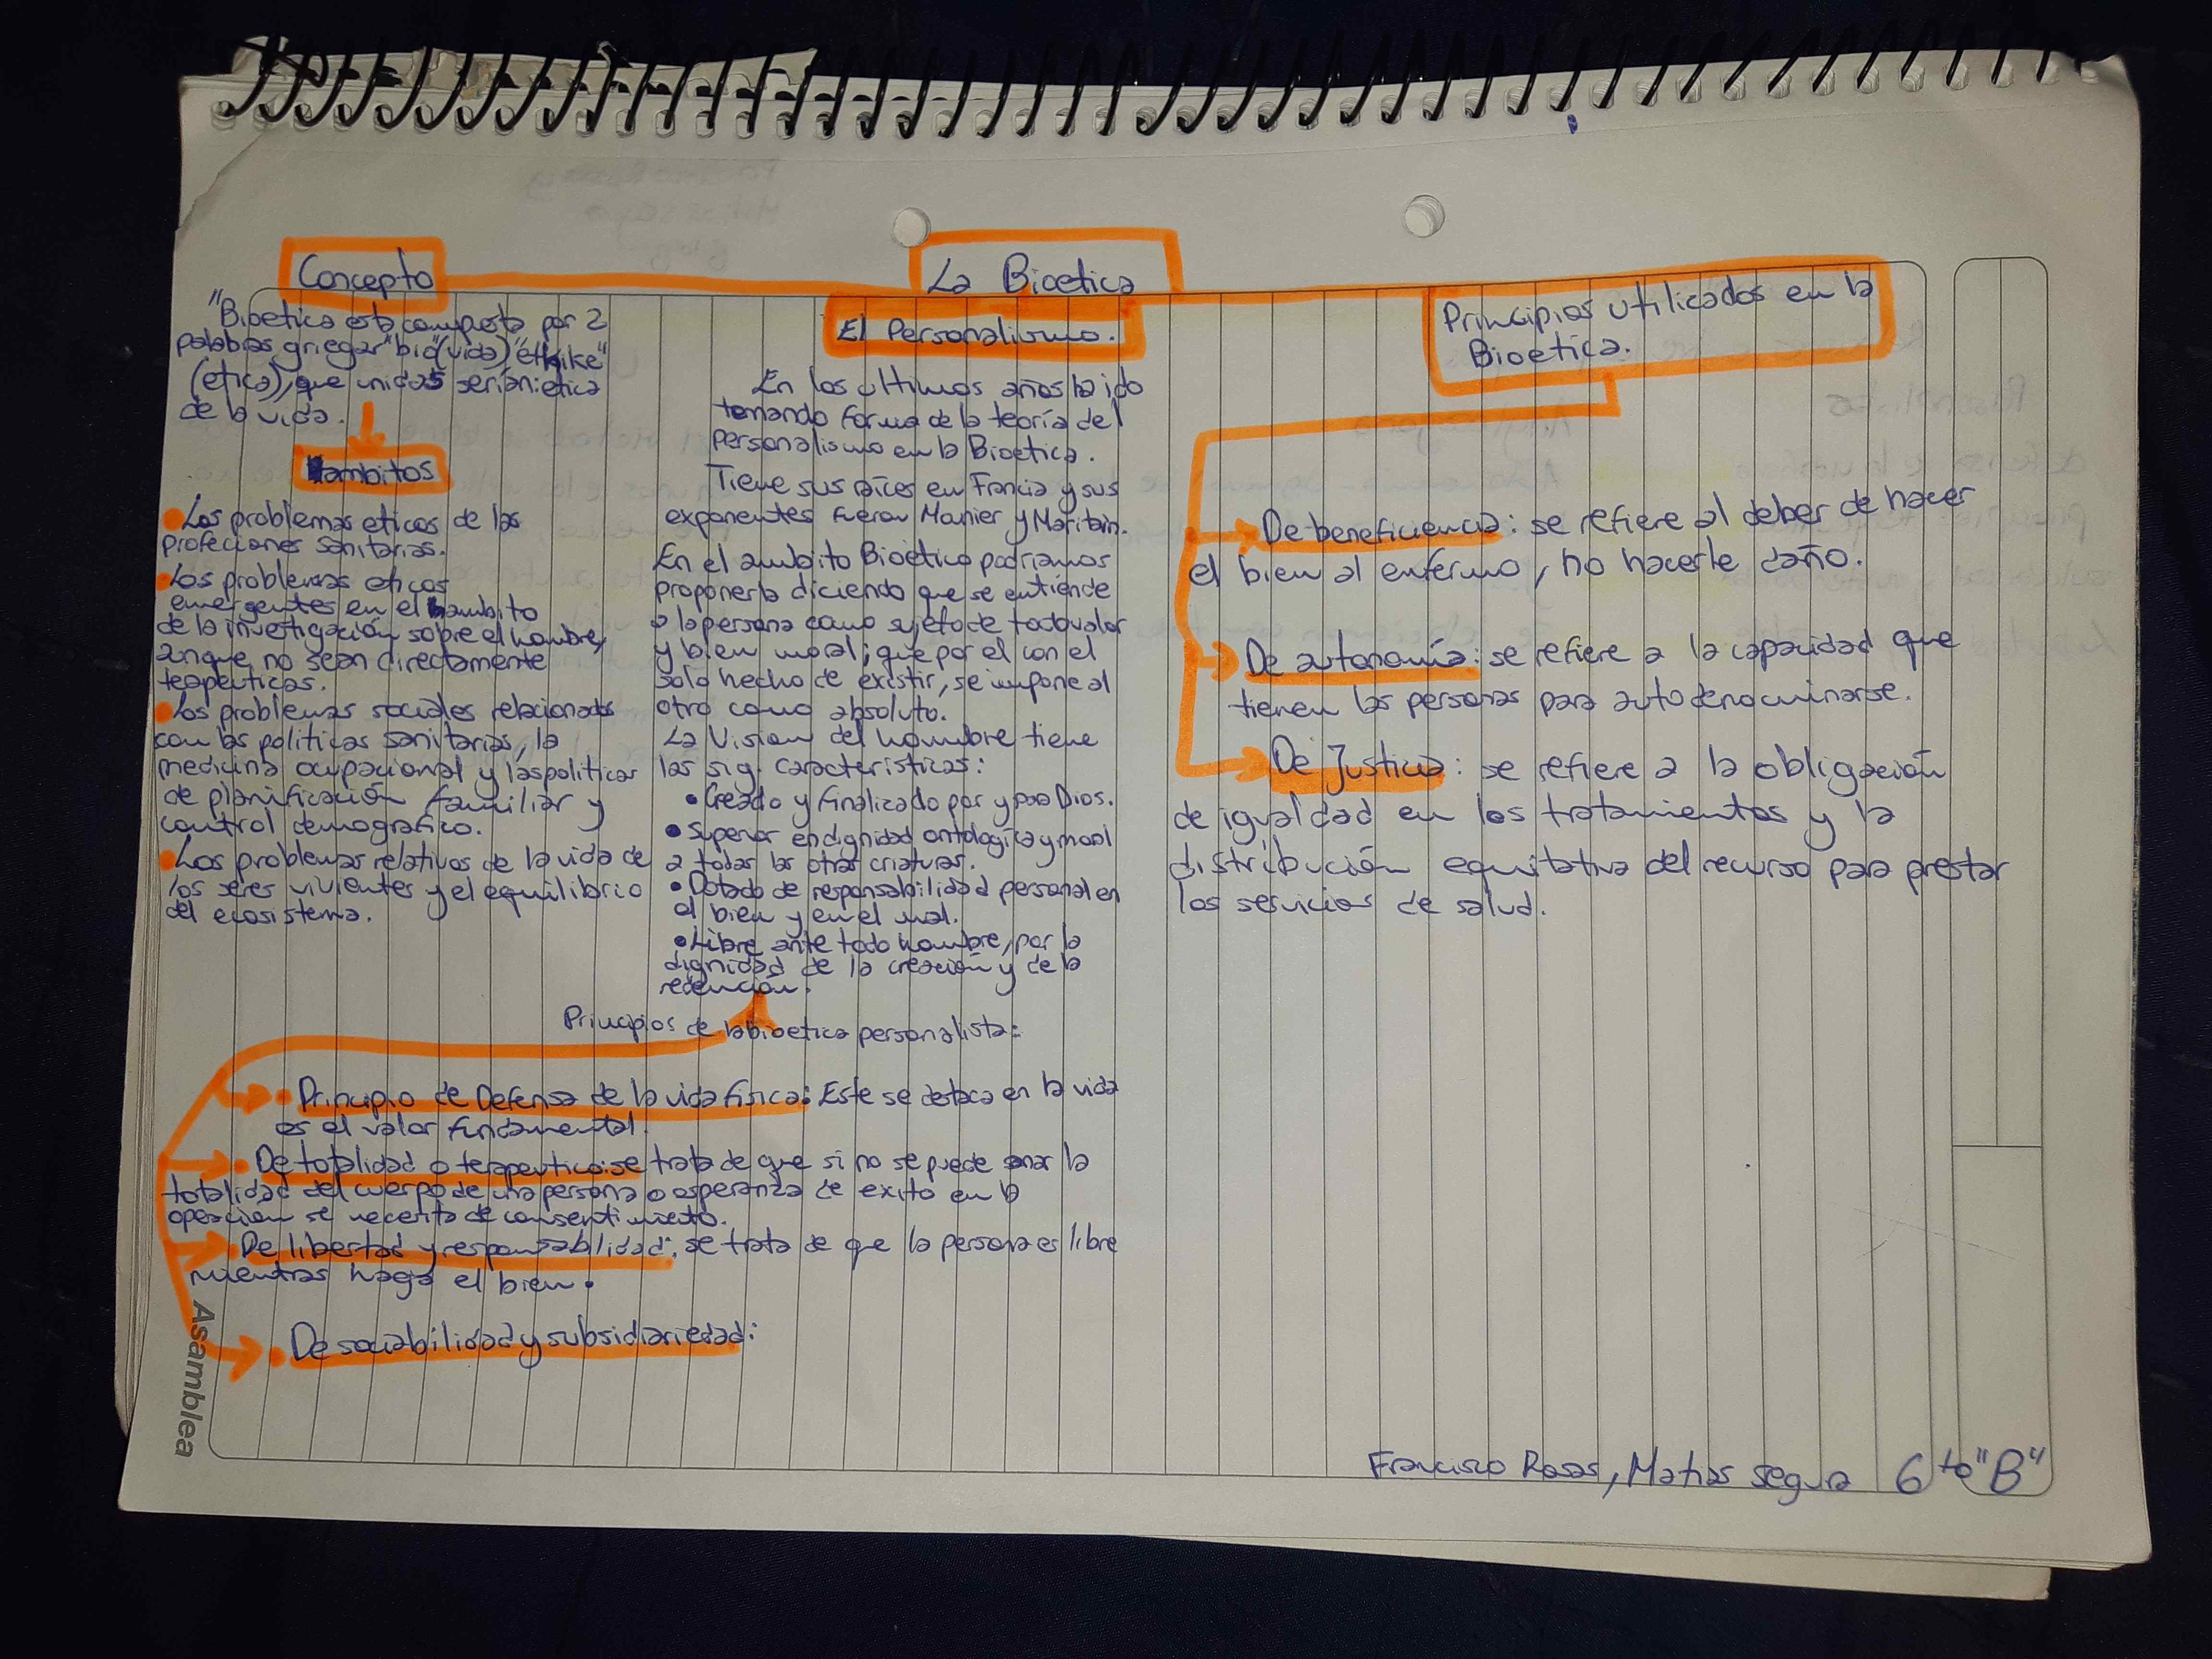 La Bioetica
Concepto
"Bioetica esta compuesta por 2
palabras griegar "bio"(vida) "ethike"
(etica), que unidas serían: etica
de la vida.
ambitos
Los problemas eticos de las
profecciones sanitarias.
Los problemas eticos
emergentes en el ambito
de la investigación sobre el hombre,
aunque no sean directamente
terapeuticas.
Los problemas sociales relacionados
con las politicas sanitarias, la
medicina ocupacional y las politicas
de planificación familiar y
control demografico.
Los problemas relativos de la vida de
los seres vivientes y el equilibrio
del ecosistema.
El Personalismo.
En los ultimos años ha ido
tomando forma de la teoría del
personalismo en la Bioetica.
Tiene sus raíces en Francia y sus
exponentes fueron Mounier y Maritain.
En el ambito Bioetico podriamos
proponerla diciendo que se entiende
a la persona como sujeto de todo valor
y bien moral; que por el con el
solo hecho de existir, se impone al
otro como absoluto.
La Vision del hombre tiene
las sig. caracteristicas:
• Creado y finalizado por y para Dios.
• Superior en dignidad ontologica y moral
a todas las otras criaturas.
• Dotado de responsabilidad personal en
el bien y en el mal.
• Libre ante todo hombre, por la
dignidad de la creación y de la
redención.
Principios de la bioetica personalista:
• Principio de Defensa de la vida fisica: Este se destaca en la vida
es el valor fundamental.
• De totalidad o terapeutico: se trata de que si no se puede sanar la
totalidad del cuerpo de una persona o esperanza de exito en la
operacion se necesita de consentimiento.
• De libertad y responsabilidad: se trata de que la persona es libre
mientras haga el bien.
• De sociabilidad y subsidiariedad:
Principios utilicados en la
Bioetica.
De beneficiencia: se refiere al deber de hacer
el bien al enfermo, no hacerle daño.
De autonomía: se refiere a la capacidad que
tienen las personas para autodenominarse.
De Justicia: se refiere a la obligación
de igualdad en los tratamientos y la
distribución equitativa del recurso para prestar
los servicios de salud.
Asamblea
Francisco Rosas, Matias Segura 6to "B"